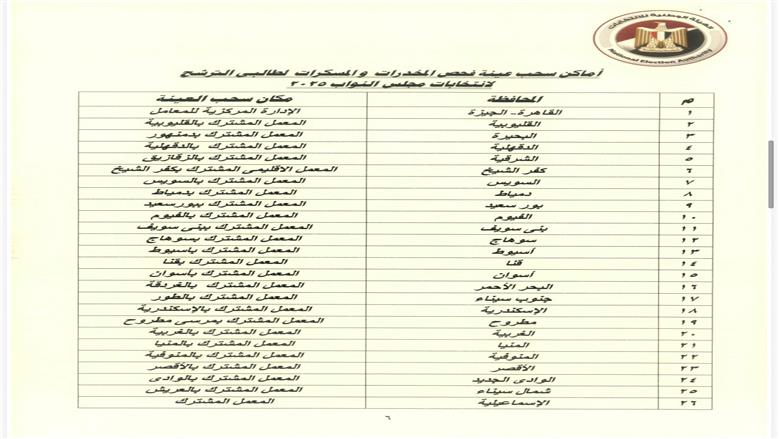 الهيئة الوطنية للانتخابات
National Election Authority
أماكن سحب عينة فحص المخدرات والمسكرات لطالبى الترشح
لانتخابات مجلس النواب ٢٠٢٥
م المحافظة مكان سحب العينة
١ القاهرة - الجيزة الإدارة المركزية للمعامل
٢ القليوبية المعمل المشترك بالقليوبية
٣ البحيرة المعمل المشترك بدمنهور
٤ الدقهلية المعمل المشترك بالدقهلية
٥ الشرقية المعمل المشترك بالزقازيق
٦ كفر الشيخ المعمل الاقليمى المشترك بكفر الشيخ
٧ السويس المعمل المشترك بالسويس
٨ دمياط المعمل المشترك بدمياط
٩ بور سعيد المعمل المشترك ببورسعيد
١٠ الفيوم المعمل المشترك بالفيوم
١١ بنى سويف المعمل المشترك ببنى سويف
١٢ سوهاج المعمل المشترك بسوهاج
١٣ أسيوط المعمل المشترك بأسيوط
١٤ قنا المعمل المشترك بقنا
١٥ أسوان المعمل المشترك بأسوان
١٦ البحر الأحمر المعمل المشترك بالغردقة
١٧ جنوب سيناء المعمل المشترك بالطور
١٨ الإسكندرية المعمل المشترك بالإسكندرية
١٩ مطروح المعمل المشترك بمرسى مطروح
٢٠ الغربية المعمل المشترك بالغربية
٢١ المنيا المعمل المشترك بالمنيا
٢٢ المنوفية المعمل المشترك بالمنوفية
٢٣ الأقصر المعمل المشترك بالأقصر
٢٤ الوادى الجديد المعمل المشترك بالوادى
٢٥ شمال سيناء المعمل المشترك بالعريش
٢٦ الإسماعيلية المعمل المشترك
٦